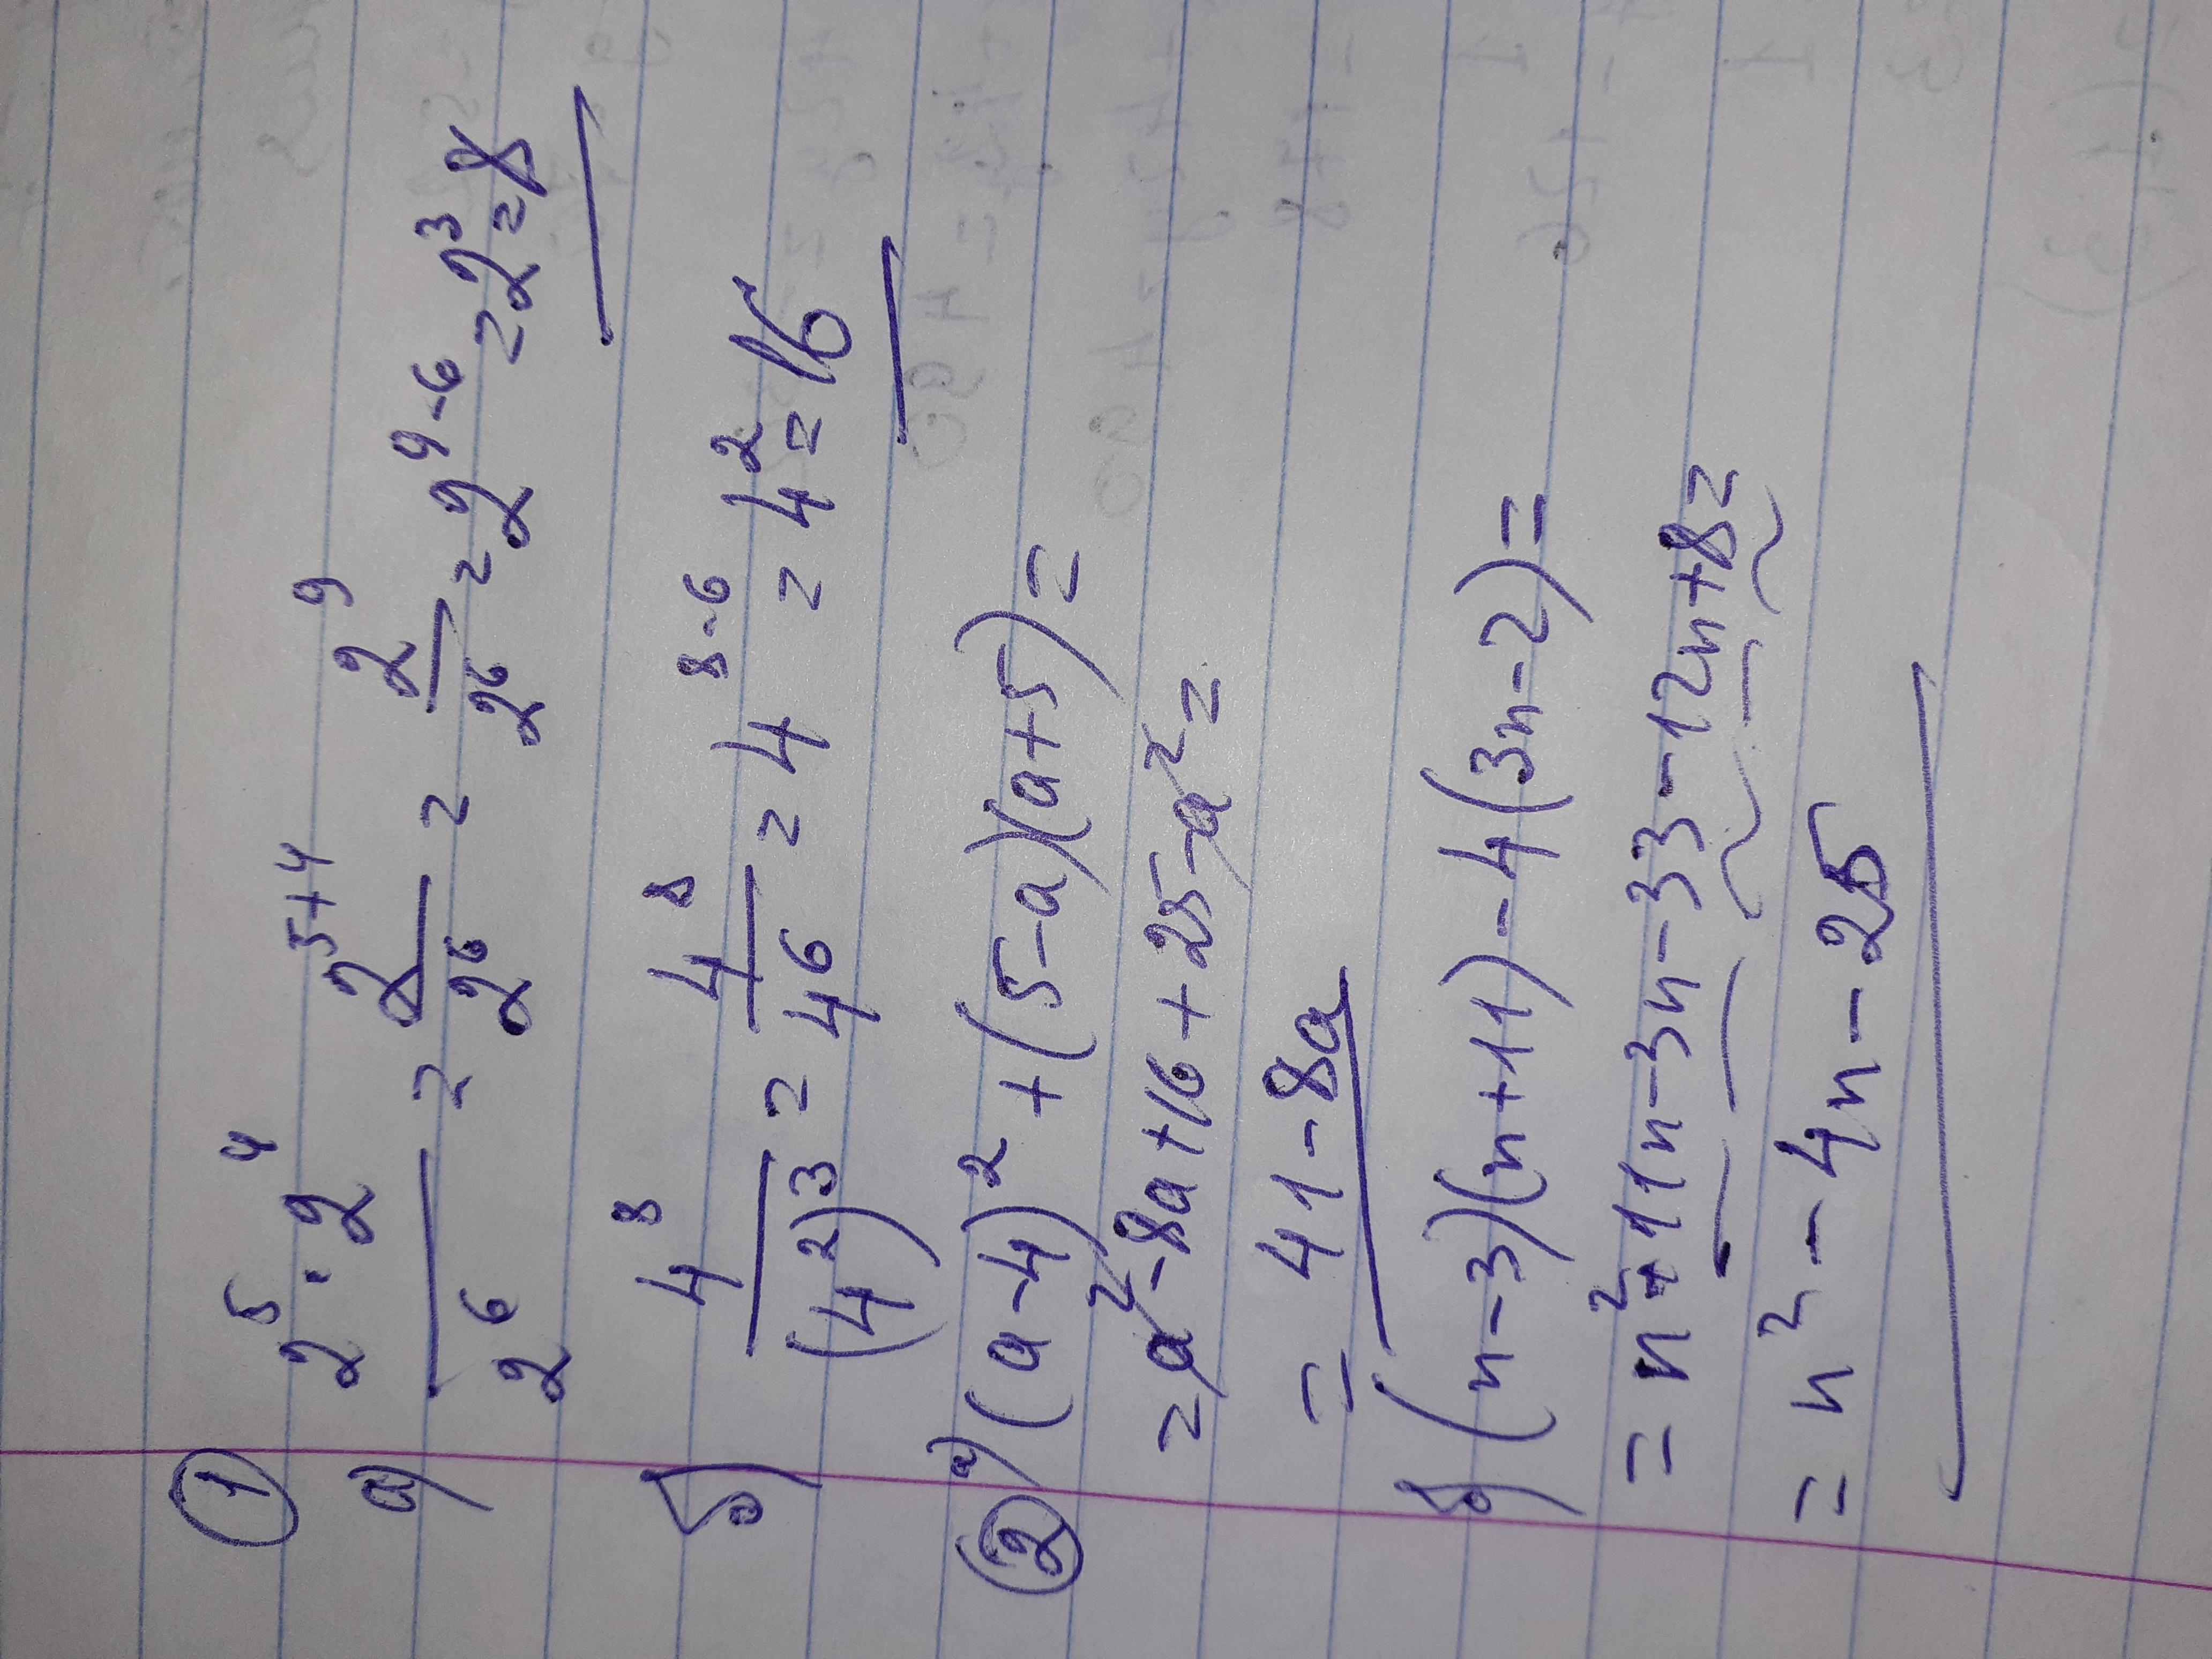 ① a) (2⁵ · 2⁴)/2⁶ = 2⁵⁺⁴/2⁶ = 2⁹/2⁶ = 2⁹⁻⁶ = 2³ = 8
б) 4⁸/(4²)³ = 4⁸/4⁶ = 4⁸⁻⁶ = 4² = 16
② a) (a-4)² + (5-a)(a+5) =
= a² - 8a + 16 + 25 - a² =
= 41 - 8a
б) (n-3)(n+11) - 4(3n-2) =
= n² + 11n - 3n - 33 - 12n + 8 =
= n² - 4n - 25